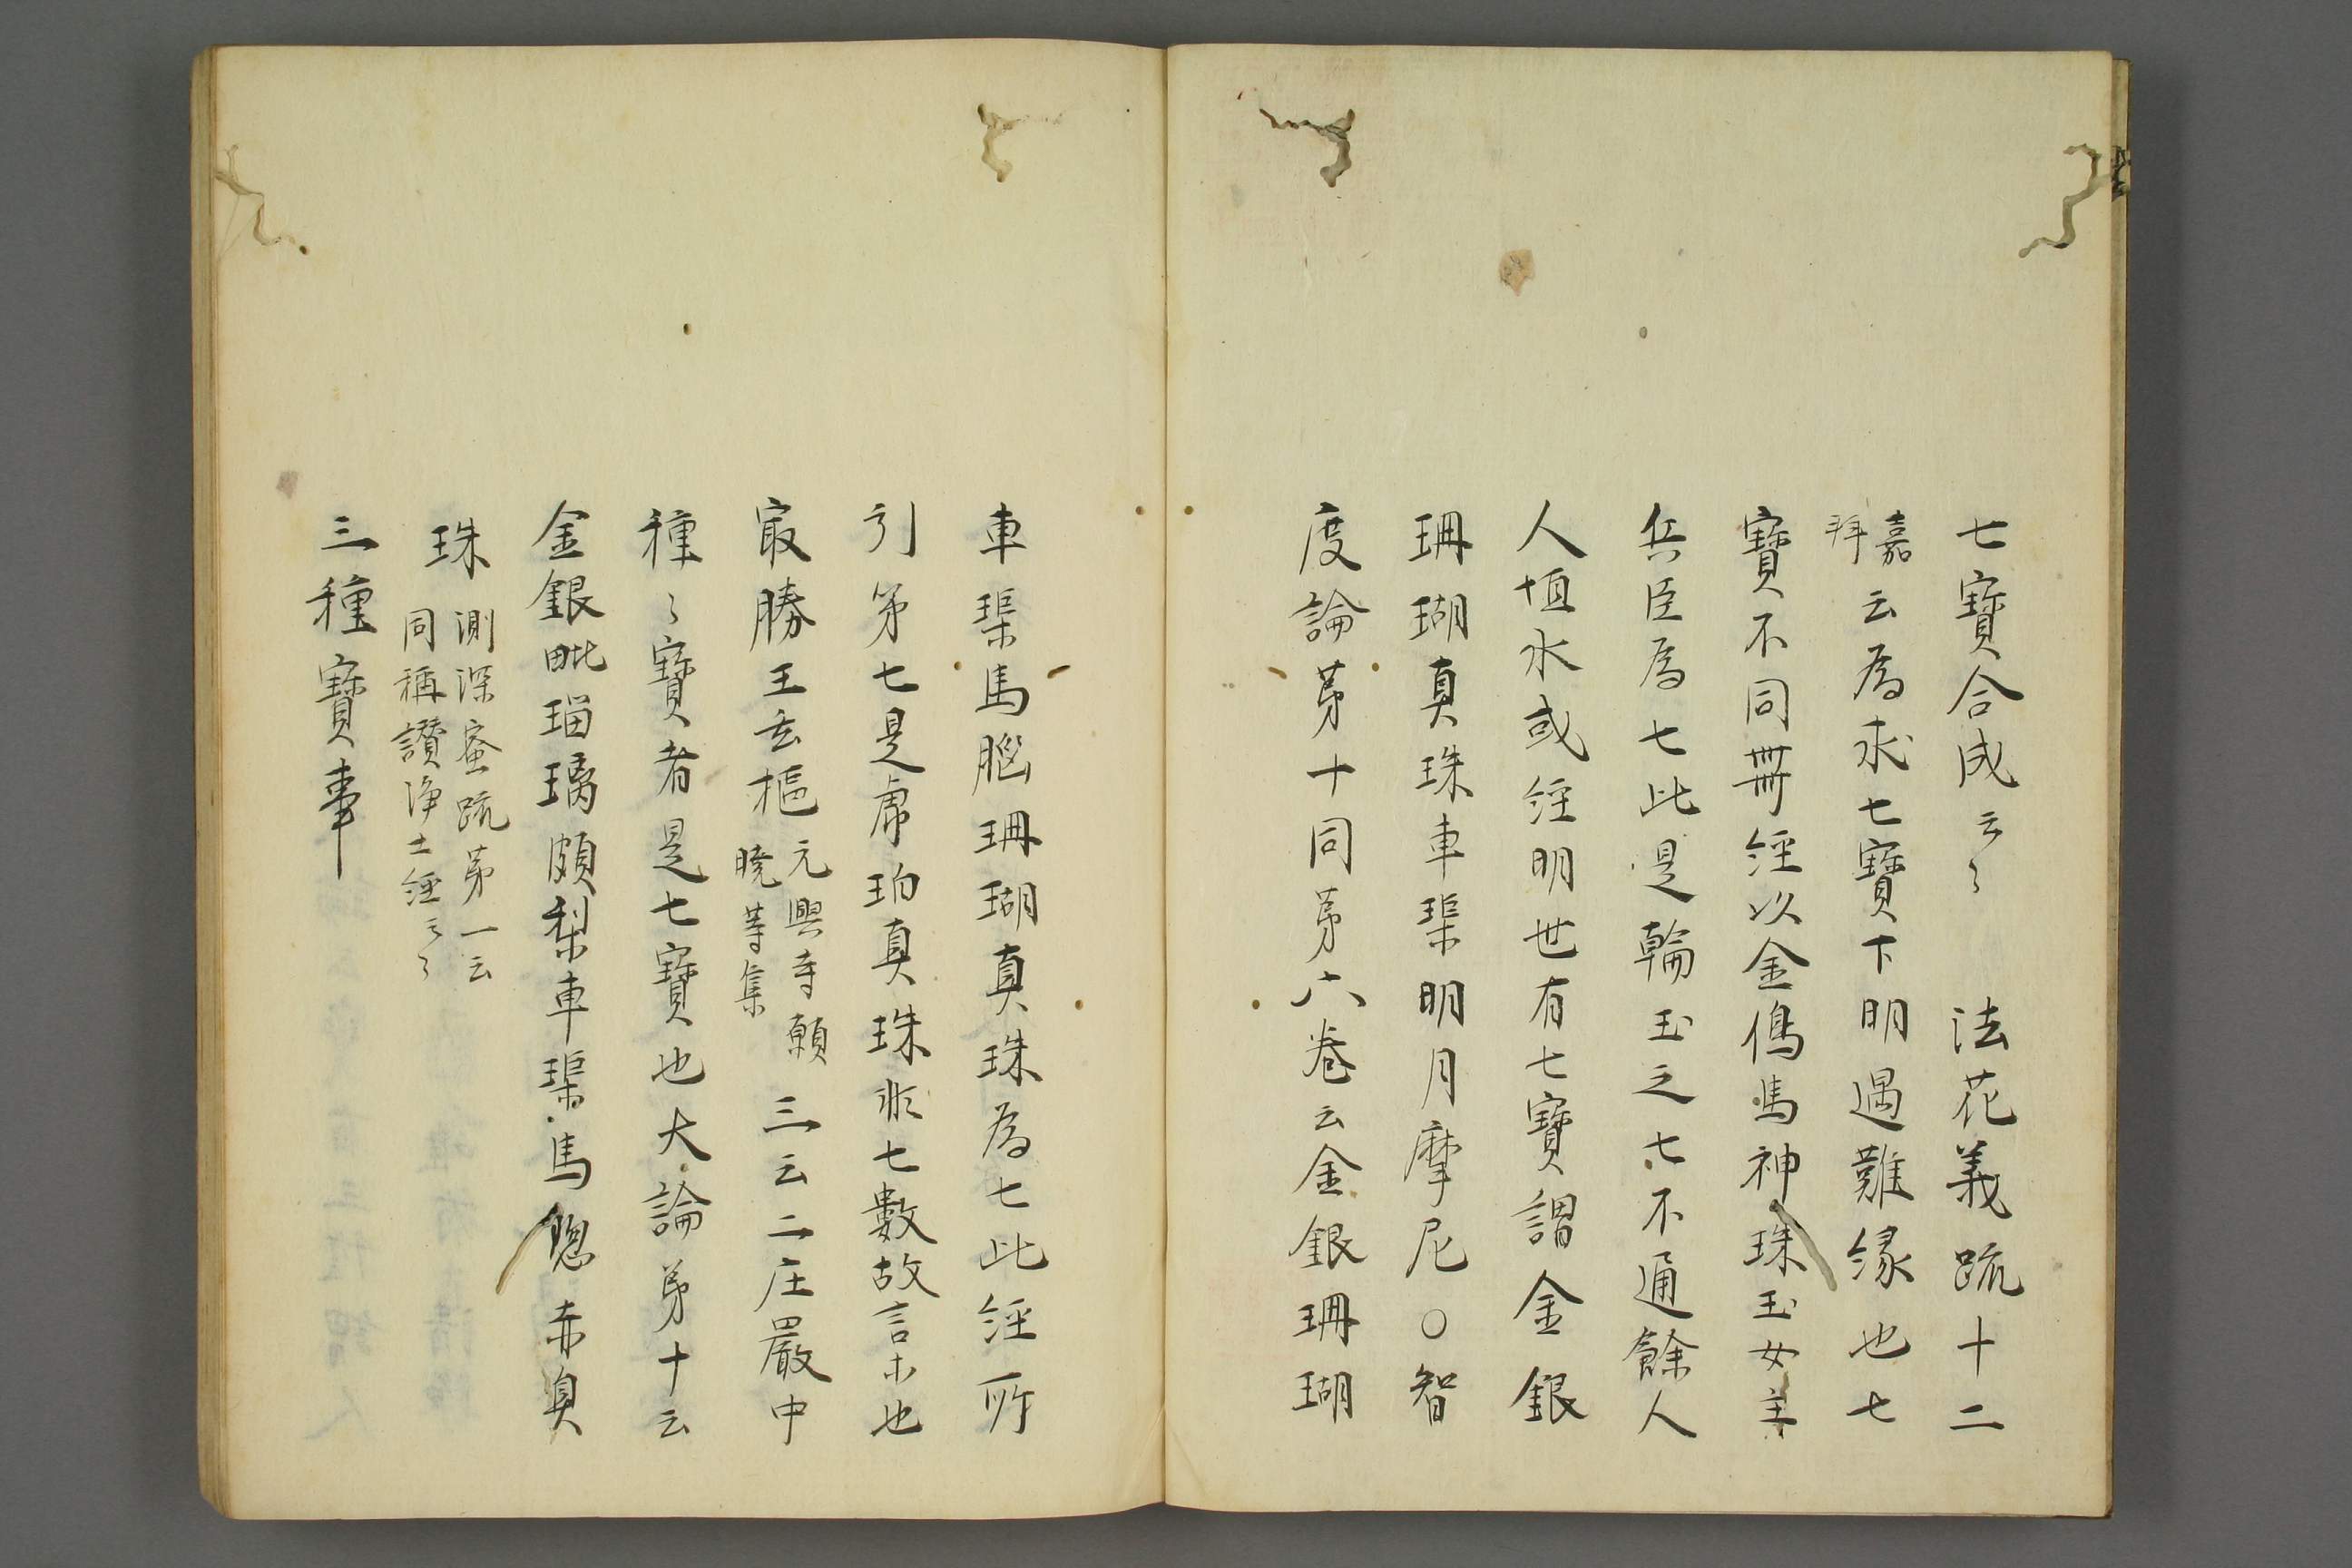 七寳合成云〻　法花義疏十二
嘉祥云為求七寳下明遇難縁也七
寳不同無經以金傷馬神珠玉女主
兵臣為七此是輪王之七不通餘人
人恒水或經明世有七寳謂金銀
珊瑚真珠車𤦲明月摩尼〇智
度論苐十同苐六巻云金銀珊瑚
車𤦲馬腦珊瑚真珠為七此經所
引第七是虎珀真珠非七數故言求也
冣勝王玄樞 元興寺願
曉等集 三云二庄嚴中
種〻寳者是七寳也大論苐十云
金銀毗瑠璃頗梨車𤦲馬 赤真
珠 測深蜜疏苐一云
同稱讃浄土經云〻
三種寳事